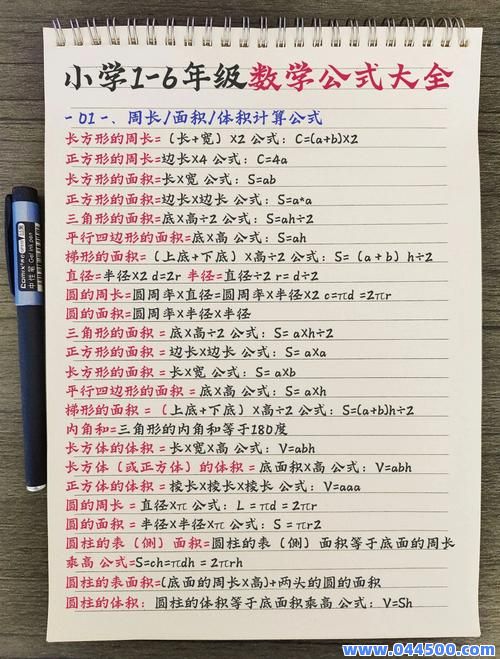 小学1-6年级数学公式大全
-01-、周长/面积/体积计算公式
长方形的周长=（长+宽）X2 公式：C=(a+b)X2
正方形的周长=边长X4 公式：C=4a
长方形的面积=长X宽 公式：S=ab
正方形的面积=边长X边长 公式：S=a*a
三角形的面积=底X高÷2 公式：S=ah÷2
平行四边形的面积=底X高 公式：S=ah
梯形的面积=（上底+下底）X高÷2 公式：S=（a+b）h÷2
直径=半径X2 d=2r 半径=直径÷2 r=d÷2
圆的周长=圆周率X直径=圆周率X半径X2 c=πd =2πr
圆的面积=圆周率X半径X半径
三角形的面积 = 底X高÷2 公式：S= aXh÷2
正方形的面积 = 边长X边长 公式：S= aXa
长方形的面积 = 长X宽 公式：S= aXb
平行四边形的面积 = 底X高 公式：S= aXh
梯形的面积 =（上底+下底）X高÷2 公式：S=(a+b)h÷2
内角和=三角形的内角和等于180度
长方体的体积 = 长X宽X高 公式：V=abh
长方体（或正方体）的体积 = 底面积X高 公式：V=abh
正方体的体积 = 棱长X棱长X棱长 公式：V=aaa
圆的周长 = 直径Xπ 公式：L = πd = 2πr
圆的面积 = 半径X半径Xπ 公式：S = πr2
圆柱的表（侧）面积=圆柱的表（侧）面积等于底面的周长
乘高 公式=S=ch=πdh = 2πrh
圆柱的表面积=(底面的周长X高)+两头的圆的面积
圆柱的体积：圆柱的体积等于底面积乘高 公式：V=Sh
Comix 齐心
中性笔 Gel ink pen
www.044500.com